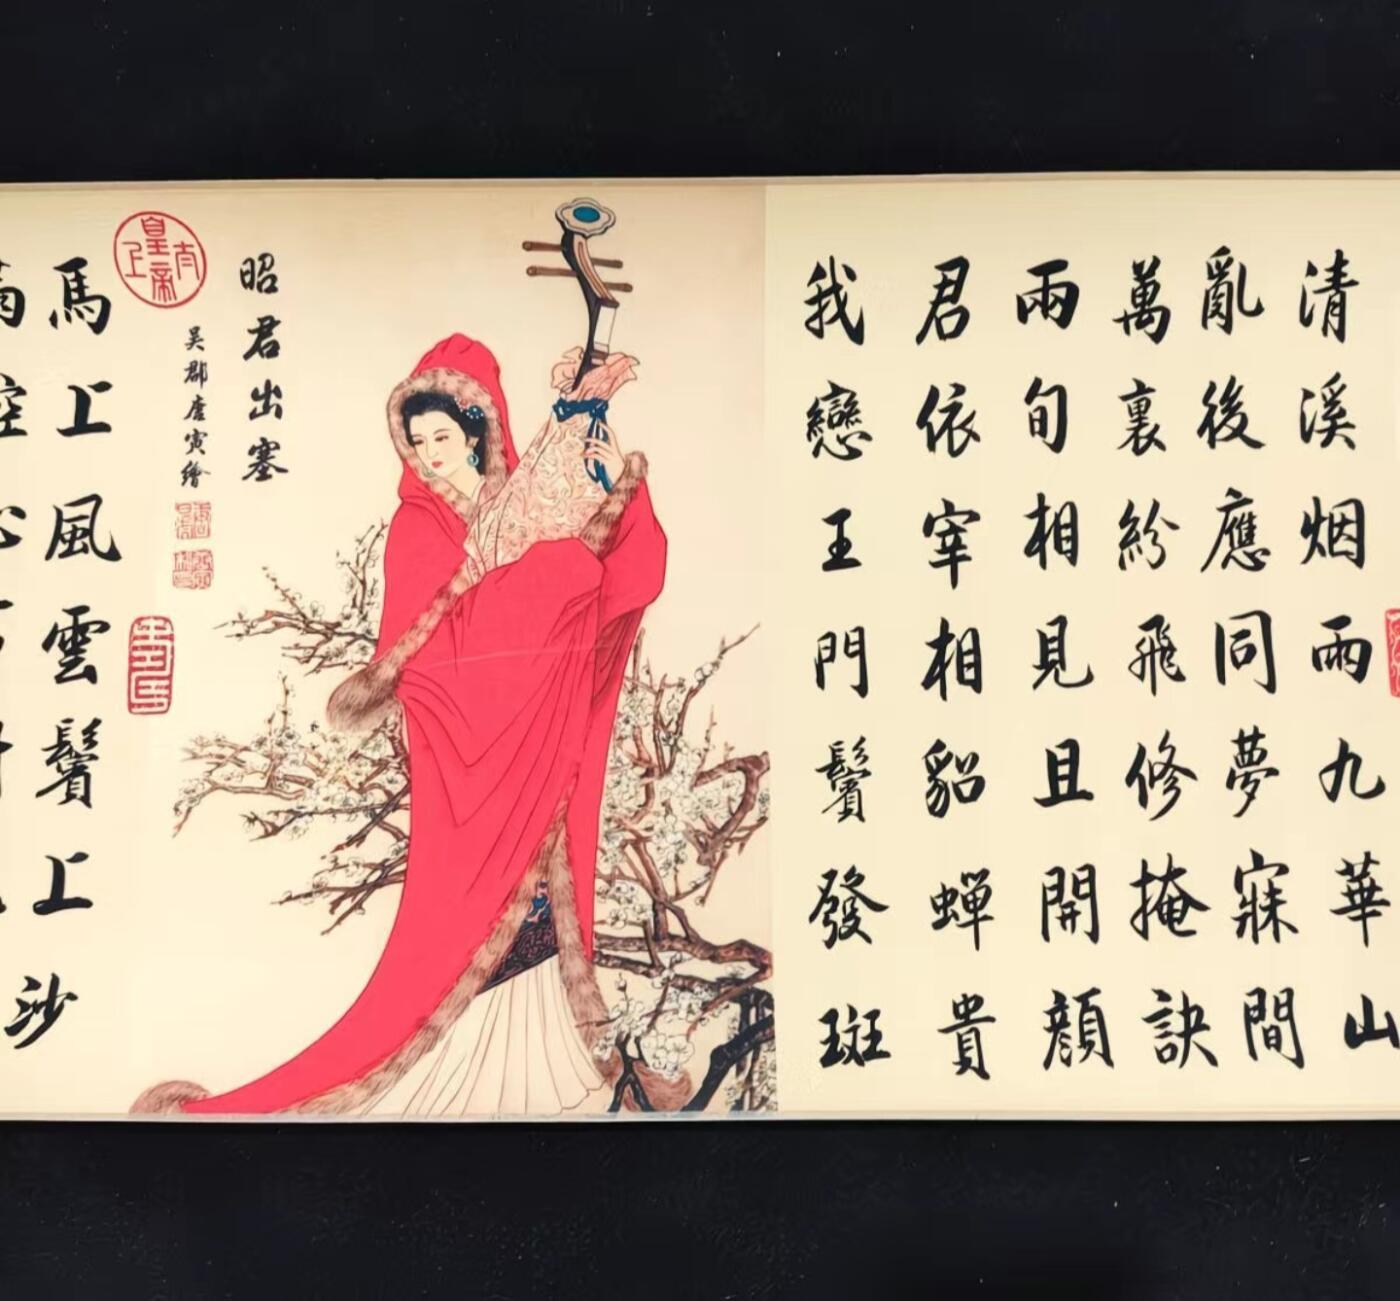 清溪烟雨九華山
亂後應同夢寐間
萬裏紛飛修掩訣
兩旬相見且開顔
君依宰相貂蟬貴
我戀王門鬢發斑
昭君出塞
吳郡唐寅繪
太上皇帝
馬上風雲鬢上沙